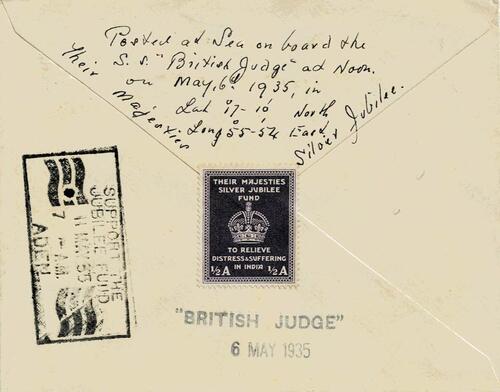 Posted at Sea on board the
S.S. "British Judge" at Noon.
on May, 6th 1935, in
Lat 17-10 North
Long 55-54 East
Their Majesties
Silver Jubilee.
SUPPORT THE
JUBILEE FUND
11 MAY 35
7-AM
ADEN
THEIR MAJESTIES
SILVER JUBILEE
FUND
TO RELIEVE
DISTRESS & SUFFERING
IN INDIA
½A ½A
"BRITISH JUDGE"
6 MAY 1935